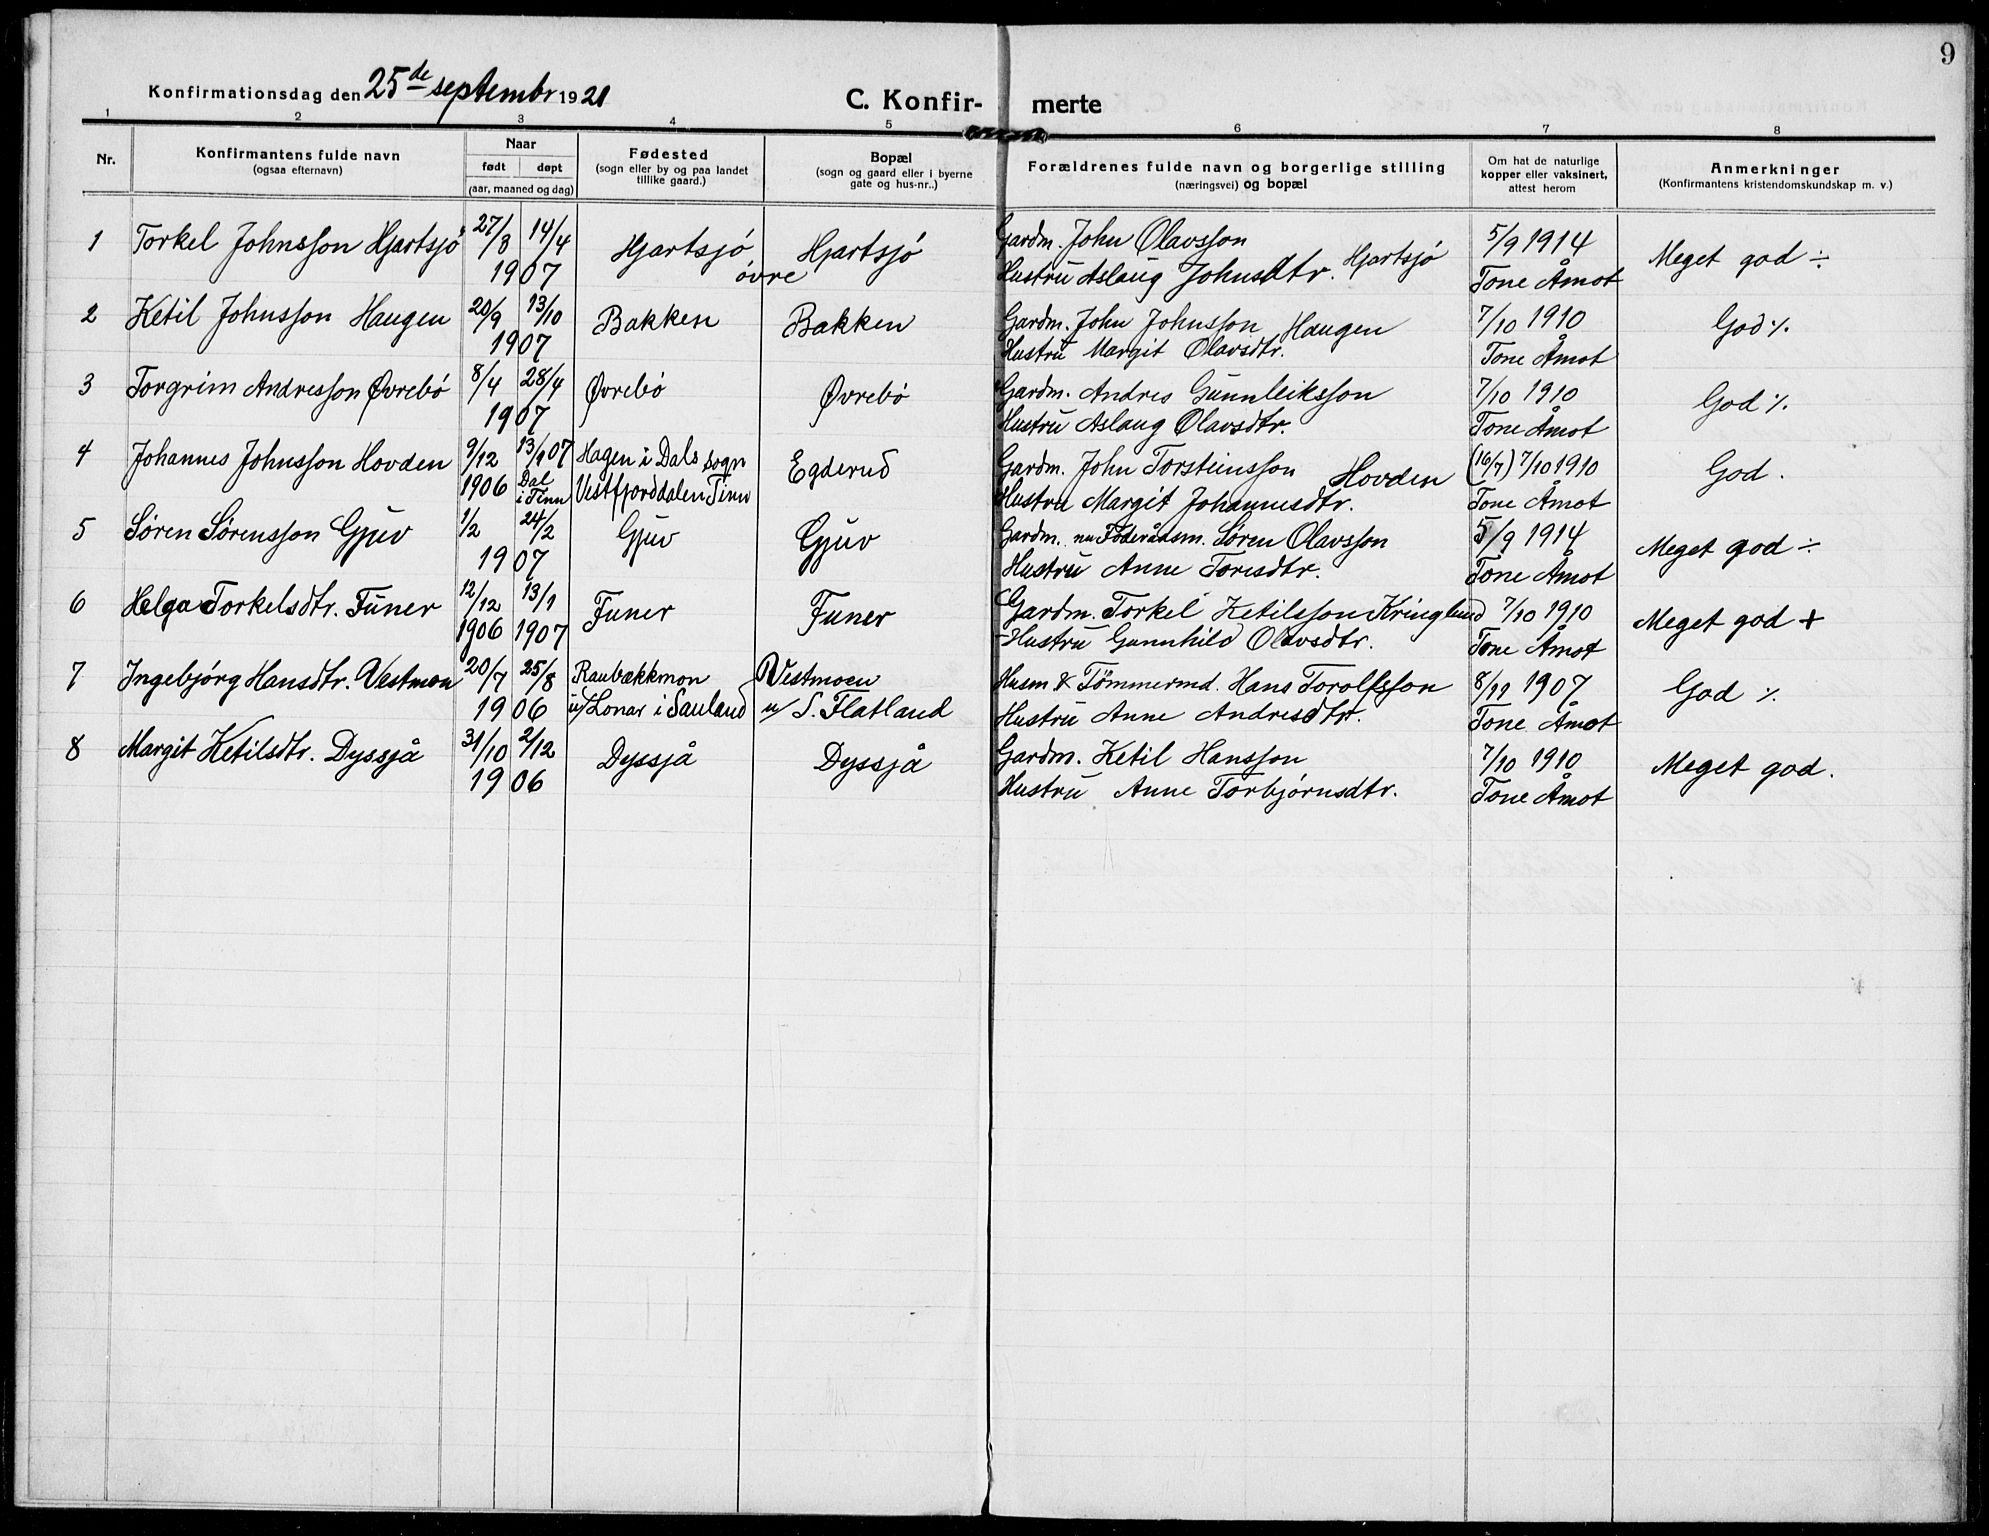 9
Konfirmationsdag den 25de septembr 1921
C. Konfir- merte
1 2 3 4 5 6 7 8
Nr.
Konfirmantens fulde navn
(ogsaa efternavn)
Naar
født døpt
(aar, maaned og dag)
Fødested
(sogn eller by og paa landet
tillike gaard.)
Bopæl
(sogn og gaard eller i byerne
gate og hus-nr..)
Forældrenes fulde navn og borgerlige stilling
(næringsvei) og bopæl
Om hat de naturlige
kopper eller vaksinert,
attest herom
Anmerkninger
(Konfirmantens kristendomskundskap m. v.)
1 Torkel Johnsson Hjartsjø 27/3 14/4 Hjartsjø Hjartsjø Gardm. John Olavsson 5/9 1914 Meget god ÷
1907 øvre Hustru Aslaug Johnsdtr. Hjartsjø Tone Åmot
2 Ketil Johnsson Haugen 20/9 13/10 Bakken Bakken Gardm. John Johnsson Haugen 7/10 1910 God %
1907 Hustru Margit Olavsdtr. Tone Åmot
3 Torgrim Andresson Øvrebø 8/4 28/4 Øvrebø Øvrebø Gardm. Andres Gunnleiksson 7/10 1910 God %
1907 Hustru Aslaug Olavsdtr. Tone Åmot
4 Johannes Johnsson Hovden 9/12 13/1 07 Hagen i Dals sogn Egderud Gardm. John Torsteinsson Hovden (16/7) 7/10 1910 God .
1906 Dal i Tinn Vestfjorddalen Tinn Hustru Margit Johannesdtr. Tone Åmot
5 Søren Sørensson Gjuv 1/2 24/2 Gjuv Gjuv Gardm. nu Föderådsm. Søren Olavsson 5/9 1914 Meget god ÷
1907 Hustru Anne Toresdtr. Tone Åmot
6 Helga Torkelsdtr. Funer 12/12 13/1 Funer Funer Gardm. Torkel Ketilsson Kringlund 7/10 1910 Meget god +
1906 1907 Hustru Gunnhild Olavsdtr. Tone Åmot
7 Ingebjørg Hansdtr. Vestmon 20/7 25/8 Raubækkmon Vestmoen Husm & Tömmermd. Hans Torolfsson 8/11 1907 God %
1906 u/ Lonar i Sauland u/ S. Flatland Hustru Anne Andresdtr. Tone Åmot
8 Margit Ketilsdtr. Dyssjå 31/10 2/12 Dyssjå Dyssjå Gardm. Ketil Hansson 7/10 1910 Meget god.
1906 Hustru Anne Torbjørnsdtr. Tone Åmot